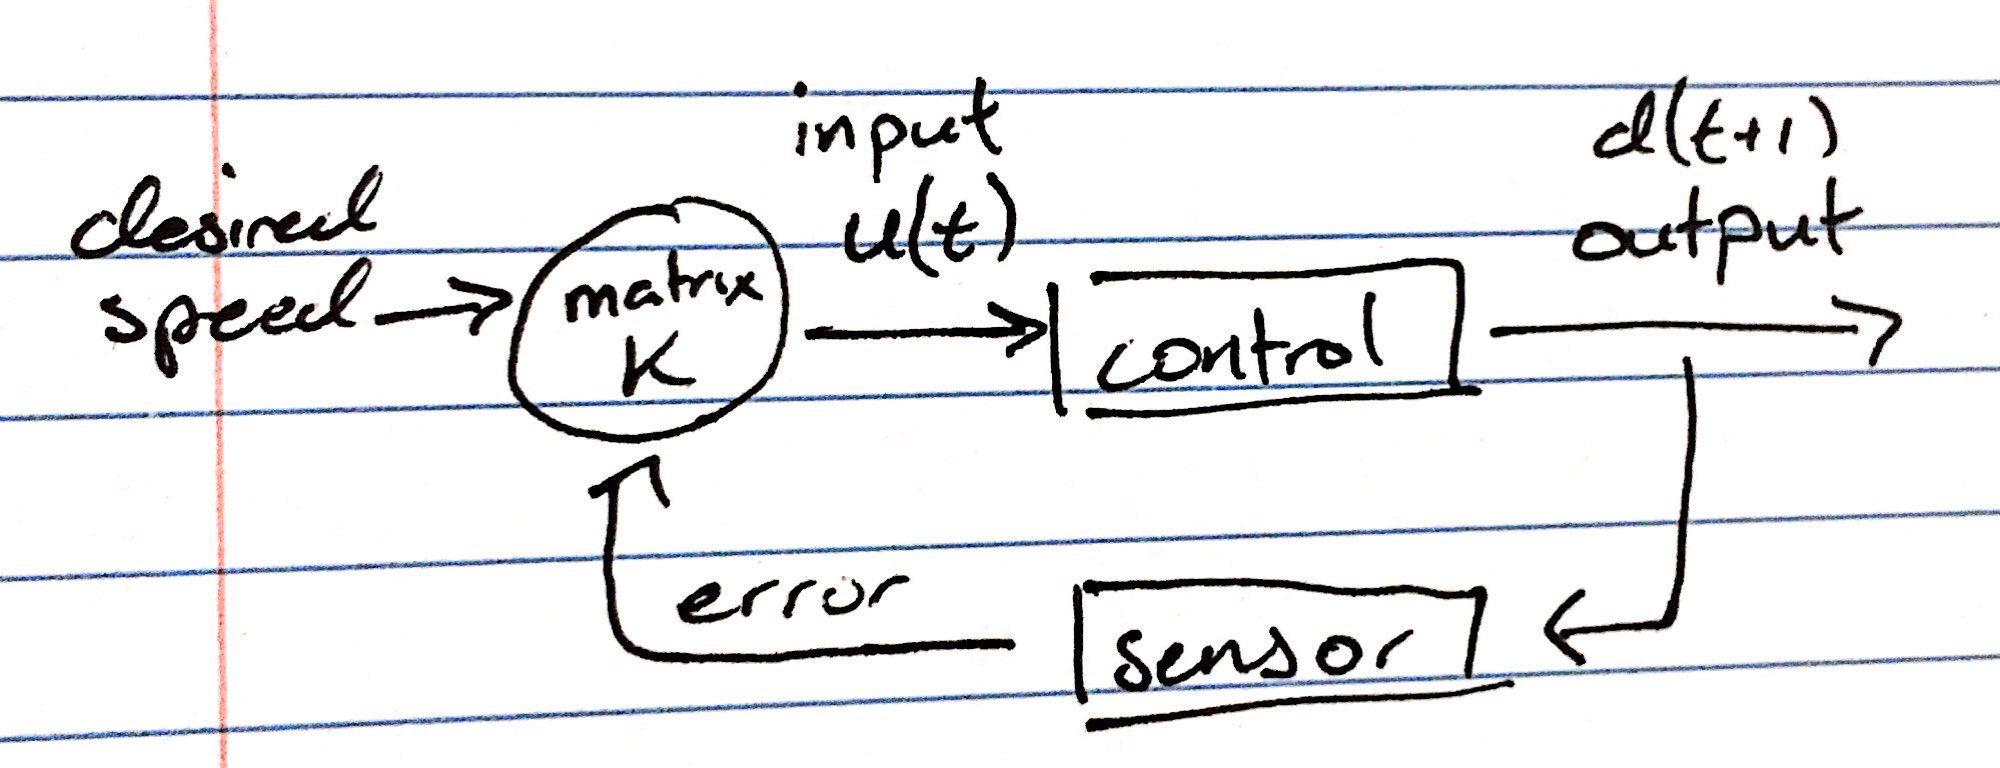 desired
speed
matrix
K
input
u(t)
control
d(t+1)
output
error
sensor